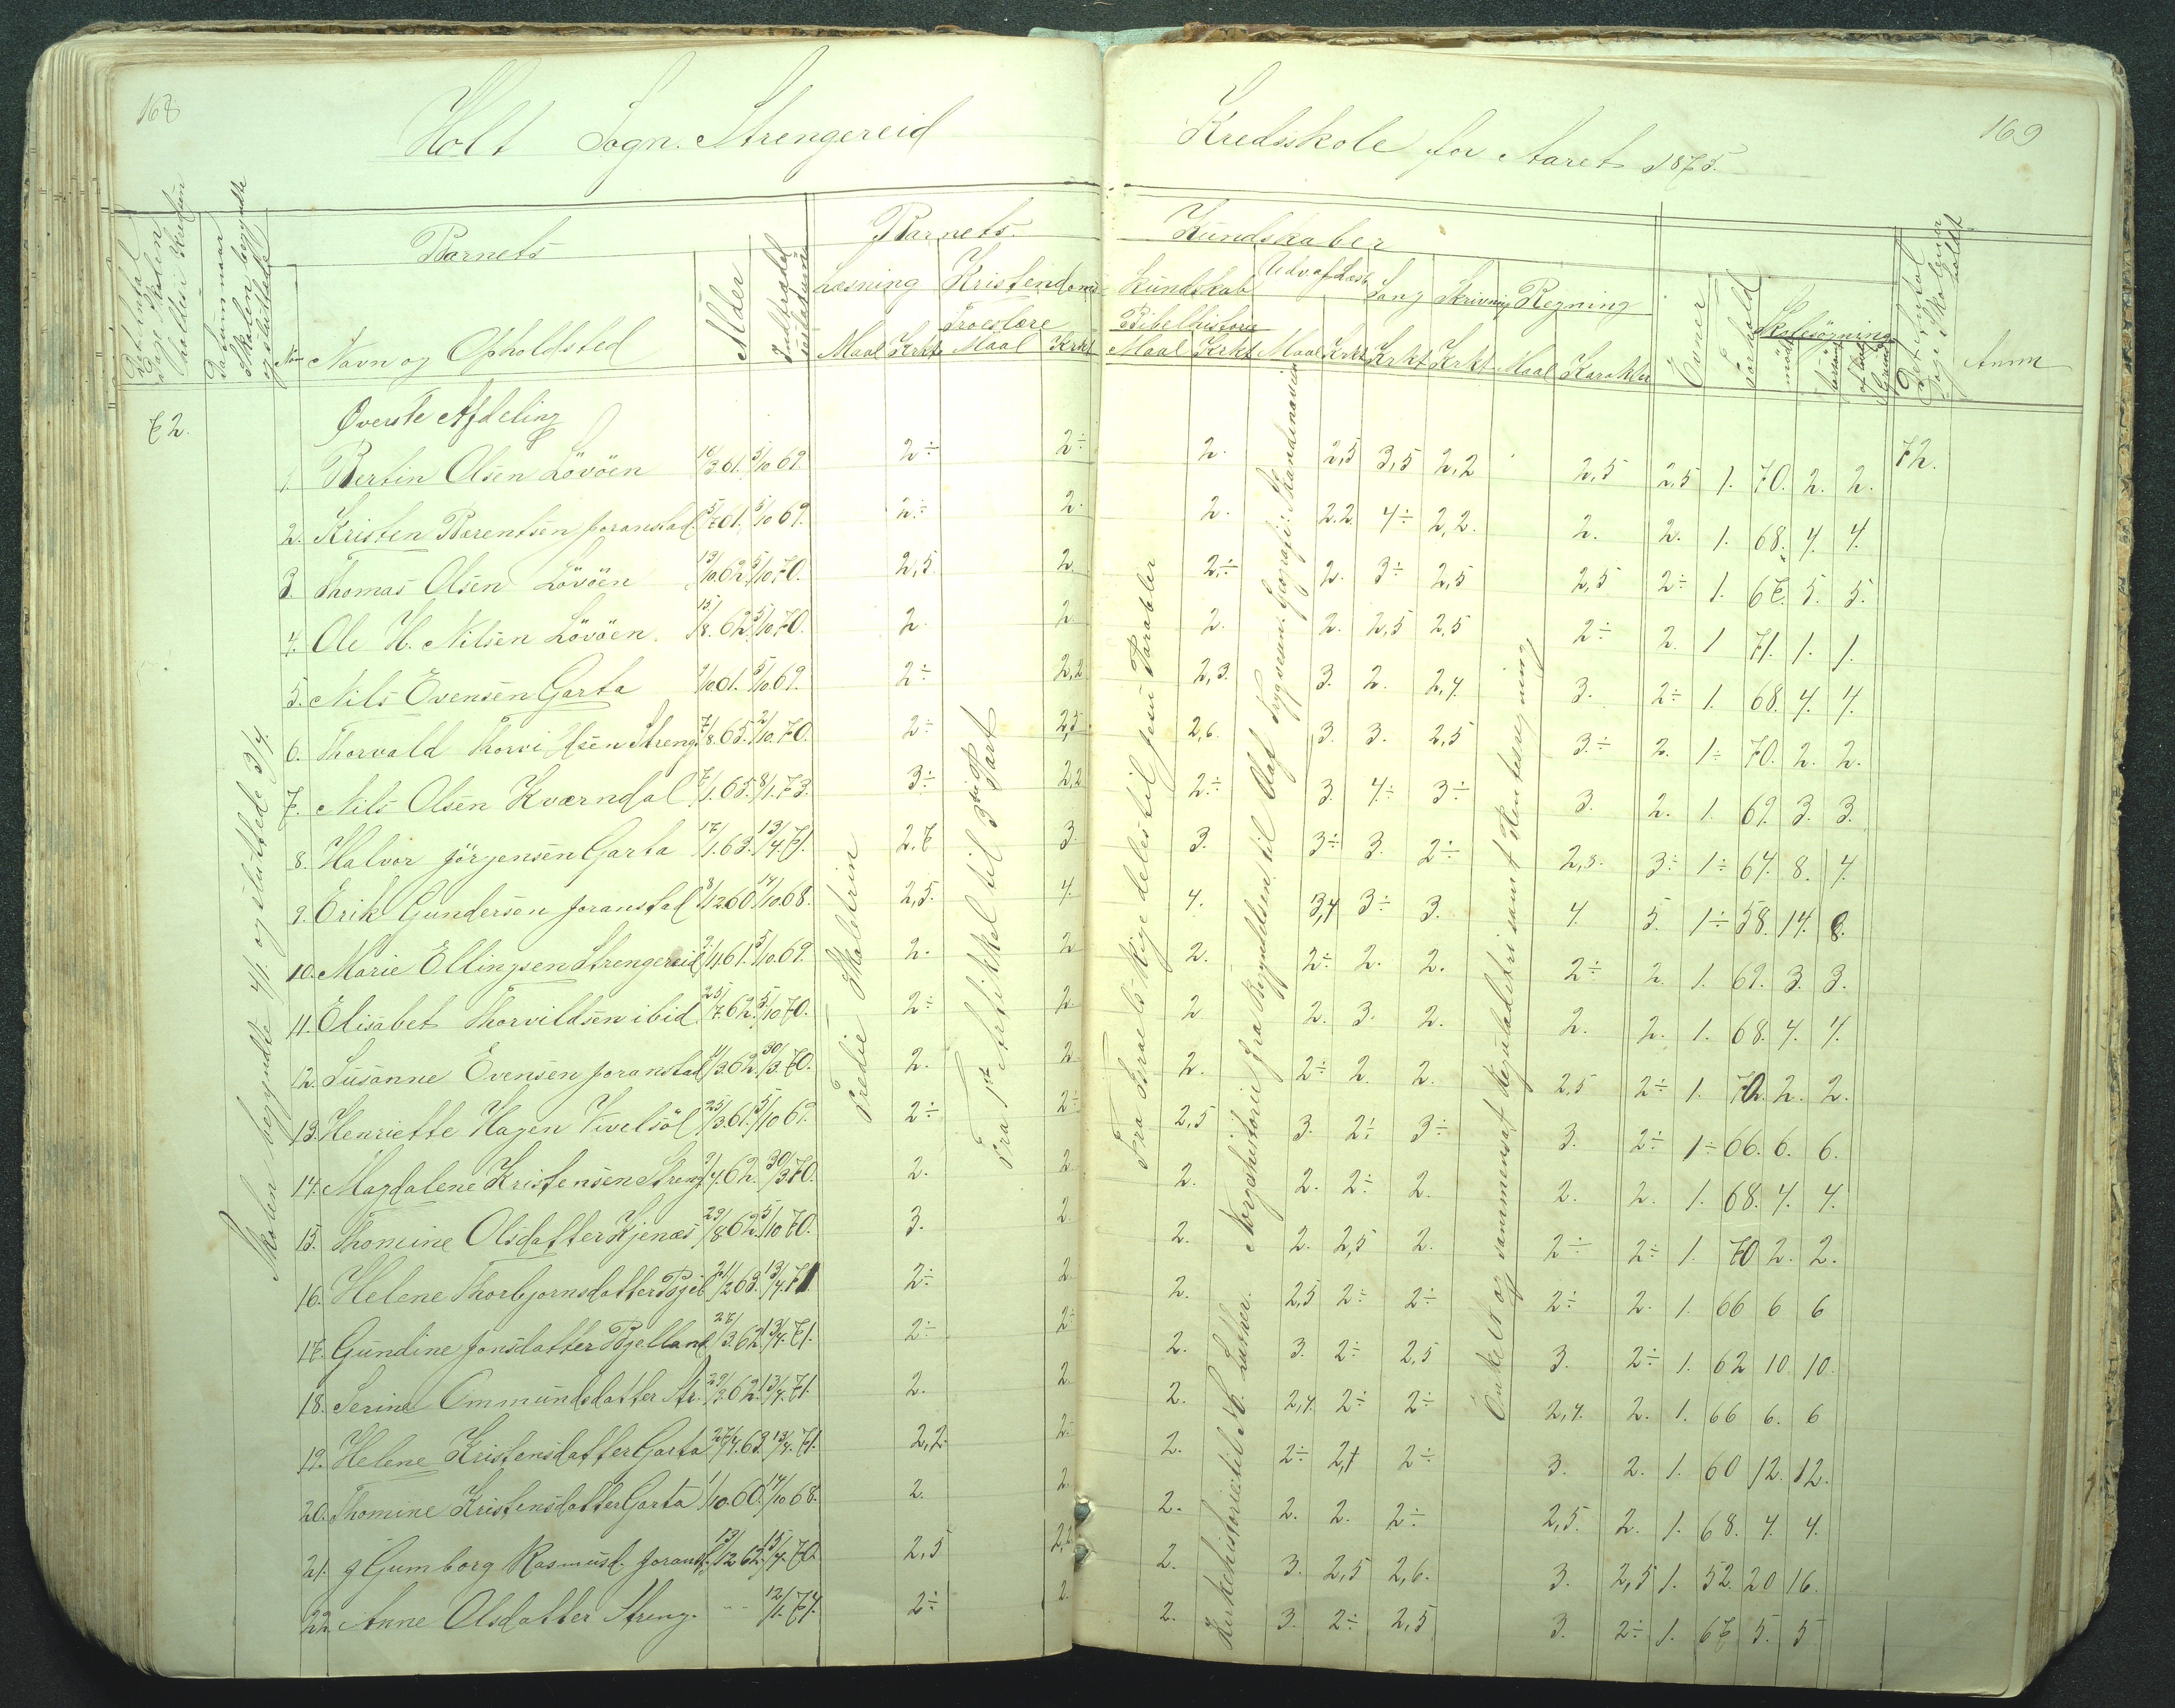 168
169
Holt Sogn. Strengereid
Kredsskole for Aaret 1875.
Barnets
Barnets
Kundskaber
Det Antal Dage Skolen holdes i Kredsen
Datum naar Skolen begyndte og sluttede
Nom
Navn og Opholdsted
Alder
Indtrædelses
Læsning
Kristendoms
kundskab
Udv. af Læseb.
Sang
Skrivning
Regning
Troeslære
Bibelhistorie
Maal Krkt Maal Krkt
Maal Krkt Maal Krkt Krkt Krkt Maal Karakter
Evner
Forhold
Skolesøgning
mødt
forsømt
Det Antal Dage Skolen er holdt
Anm
72.
Øverste Afdeling
72.
1. Bertin Olsen Lövöen 16/3.61. 5/10 69. 2÷ 2÷ 2. 2,5 3,5 2,2 2,5 2,5 1. 70. 2. 2.
2. Kristen Barentsen Joranstad. 5/7.61. 5/10 69. 2÷ 2. 2. 2.2. 4÷ 2,2. 2. 2. 1. 68. 4. 4.
3. Thomas Olsen Lövöen 13/10.62. 5/10.70. 2,5. 2. 2÷ 2. 3÷ 2,5 2,5 2÷ 1. 67. 5. 5.
4. Ole H. Nilsen Lövöen. 15/8.62. 5/10.70. 2. 2. 2. 2. 2,5 2,5 2÷ 2. 1 71. 1. 1.
5. Nils Evensen Garta 1/10.61. 5/10.69. 2÷ 2,2 2,3. 3. 2. 2,4. 3. 2÷ 1. 68. 4. 4.
6. Thorvald Thorvildsen Streng. 7/8.65. 2/10.70. 2÷ 2,5 2,6. 3. 3. 2,5 3.÷ 2. 1÷ 70. 2. 2.
7. Nils Olsen Kværndal 7/1.65. 8/1.73. 3÷ 2,2 2÷ 3. 4÷ 3÷ 3. 2. 1. 69. 3. 3.
8. Halvor Jörgensen Garta 17/1.63. 13/4.71. 2,7 3. 3. 3÷ 3. 2÷ 2,3. 3÷ 1÷ 64. 8. 4.
9. Erik Gundersen Joranstad 8/12.60. 14/10.68. 2,5. 4. 4. 3,4 3÷ 3. 4. 5. 1÷ 58. 14. 8.
10. Marie Ellingsen Strengereid 2/11.61. 5/10.69. 2. 2 2. 2÷ 2. 2. 2÷ 2. 1. 69. 3. 3.
11. Elisabet Thorvildsen ibid. 25/7.62. 5/10 70. 2÷ 2. 2 2. 3. 2. 2. 2. 1. 68. 4. 4.
12. Susanne Evensen Joranstad 4/3.62. 30/3.70. 2. 2 2. 2÷ 2. 2. 2,5 2÷ 1. 70. 2. 2.
13. Henriette Hagen Tvetsöl 25/3.61. 5/10 69. 2÷ 2÷ 2,5 3. 2÷ 3÷ 3. 2÷ 1÷ 66. 6. 6.
14. Magdalene Kristensen Streng. 9/4.62. 30/3.70. 2. 2. 2. 2. 2÷ 2. 2. 2. 1. 68. 4. 4.
15. Thomine Olsdatter Kjenæs 29/8.62. 5/10 70. 3. 2. 2. 2. 2,5 2. 2÷ 2÷ 1. 70 2. 2.
16. Helene Thorbjornsdatter Bjel 21/2.63. 13/4.71. 2÷ 2 2. 2,5 2÷ 2÷ 2÷ 2. 1. 66 6 6
17. Gundine Jonsdatter Bjelland 27/3.62. 13/4.71. 2÷ 2÷ 2. 3. 2÷ 2,5 3. 2÷ 1. 62 10 10.
18. Serine Ommundsdatter Str. 29/3.62. 13/4.71. 2. 2. 2. 2,4. 2÷ 2÷ 2,4. 2. 1. 66 6. 6
19. Helene Kristensdatter Garta 27/4.63. 13/4.71. 2,2. 2÷ 2. 2÷ 2,4 2÷ 3. 2. 1. 60 12. 12.
20. Thomine Kristensdatter Garta 1/10.60. 14/10 68. 2. 2. 2. 2. 2. 2÷ 2,5. 2. 1. 68. 4. 4.
21. Gumborg Rasmusd. Joranst. 13/12 62. 15/4.70. 2,5 2,2 2. 3. 2,5 2,6. 3. 2,5 1. 52. 20 16.
22. Anne Olsdatter Streng. -- 12/1.74. 2÷ 2. 2. 3. 2÷ 2,5 3. 2÷ 1. 67 5. 5
Skolen begyndte 4/1. og sluttede 3/4.
Tredie Skoletrin
Fra 1ste Artikkel til 3die Part
Fra Israels Rige deles til Jesu Parabler
Norgeshistorie fra Begyndelsen til Olaf Tryggvesøn. Geografi: Skandinavien
Kirkehistorie til Luther.
Enkelt og sammensat Reguladetri samt Rentesregning